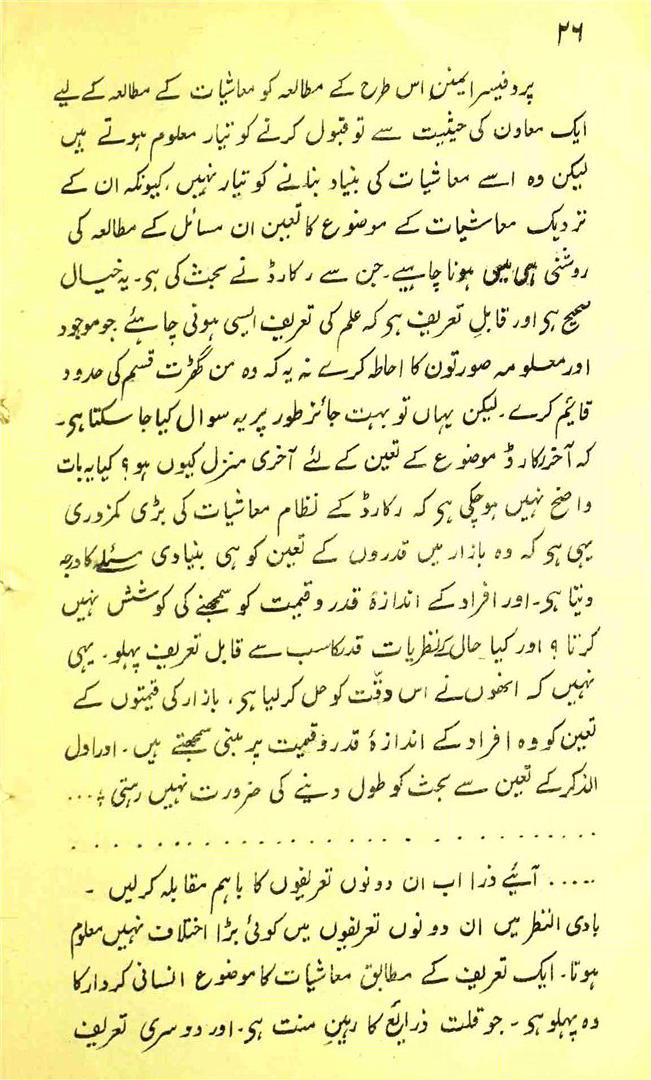 ۲۶
پروفیسر ایمنن اس طرح کے مطالعہ کو معاشیات کے مطالعہ کے لیے
ایک معاون کی حیثیت سے تو قبول کرنے کو تیار معلوم ہوتے ہیں
لیکن وہ اسے معاشیات کی بنیاد بنانے کو تیار نہیں، کیونکہ ان کے
نزدیک معاشیات کے موضوع کا تعین ان مسائل کے مطالعہ کی
روشنی ہی میں ہونا چاہیے۔ جن سے رکارڈ نے بحث کی ہی۔ یہ خیال
صحیح ہی اور قابلِ تعریف ہی کہ علم کی تعریف ایسی ہونی چاہئے جو موجود
اور معلومہ صورتوں کا احاطہ کرے نہ یہ کہ وہ من گھڑت قسم کی حدود
قائیم کرے۔ لیکن یہاں تو بہت جائز طور پر یہ سوال کیا جا سکتا ہی۔
کہ آخر رکارڈ موضوع کے تعین کے لئے آخری منزل کیوں ہو؟ کیا یہ بات
واضح نہیں ہو چکی ہی کہ رکارڈ کے نظام معاشیات کی بڑی کمزوری
یہی ہی کہ وہ بازار میں قدروں کے تعین کو ہی بنیادی مسئلہ کا درجہ
دیتا ہی۔ اور افراد کے اندازۂ قدر و قیمت کو سمجھنے کی کوشش نہیں
کرتا؟ اور کیا حال کے نظریات قدر کا سب سے قابل تعریف پہلو۔ یہی
نہیں کہ انھوں نے اس دقّت کو حل کر لیا ہی، بازار کی قیمتوں کے
تعین کو وہ افراد کے اندازۂ قدر و قیمت پر مبنی سمجھتے ہیں۔ اور اول
الذکر کے تعین سے بحث کو طول دینے کی ضرورت نہیں رہتی ؛ ...
. . . . . . . . . . . . . . . . . . . .
..... آئیے ذرا اب ان دونوں تعریفوں کا باہم مقابلہ کر لیں۔
بادی النظر میں ان دونوں تعریفوں میں کوئی بڑا اختلاف نہیں معلوم
ہوتا۔ ایک تعریف کے مطابق معاشیات کا موضوع انسانی کردار کا
وہ پہلو ہی۔ جو قلت ذرایع کا رہینِ منت ہی۔ اور دوسری تعریف